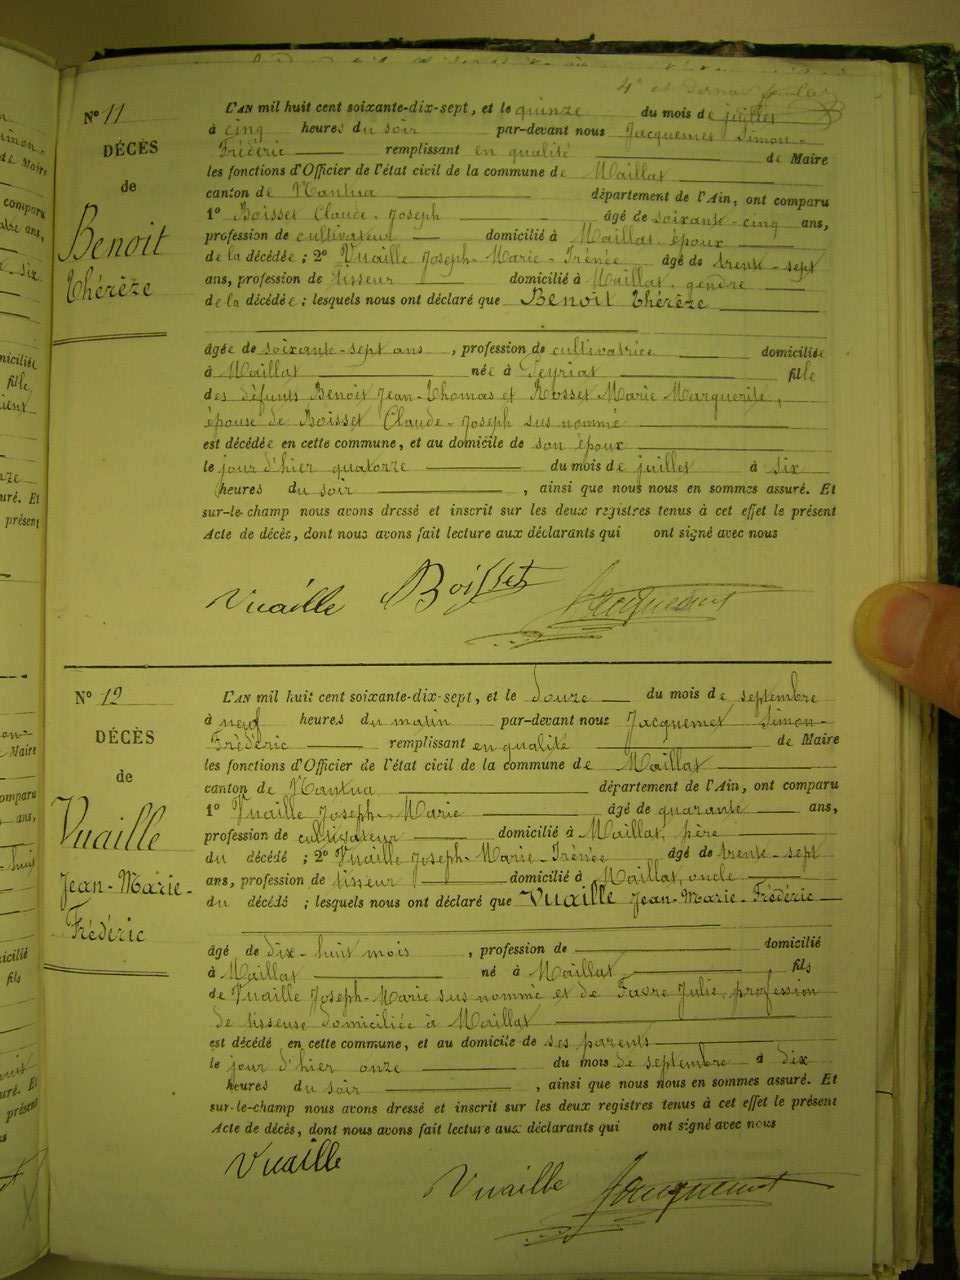 4e et dernier feuillet
N° 11
DÉCÈS
de
Benoit
Thérèze
L'AN mil huit cent soixante-dix-sept, et le quinze du mois de juillet
à cinq heures du soir par-devant nous Jacquemet Simon-
Frédéric remplissant en qualité de Maire
les fonctions d'Officier de l'état civil de la commune de Maillat
canton de Nantua département de l'Ain, ont comparu
1° Boisset Claude-Joseph âgé de soixante-cinq ans,
profession de cultivateur domicilié à Maillat, époux
de la décédée ; 2° Vuaille Joseph-Marie-Irénée âgé de trente-sept
ans, profession de tisseur domicilié à Maillat, gendre
de la décédée ; lesquels nous ont déclaré que Benoit Thérèze
âgée de soixante-sept ans, profession de cultivatrice domiciliée
à Maillat née à Peyriat fille
des défunts Benoit Jean-Thomas et Rosset Marie Marguerite,
épouse de Boisset Claude-Joseph sus nommé
est décédée en cette commune, et au domicile de son époux
le jour d'hier quatorze du mois de juillet à six
heures du soir , ainsi que nous nous en sommes assuré. Et
sur-le-champ nous avons dressé et inscrit sur les deux registres tenus à cet effet le présent
Acte de décès, dont nous avons fait lecture aux déclarants qui ont signé avec nous
Vuaille Boisset Jacquemet
N° 12
DÉCÈS
de
Vuaille
Jean-Marie-
Frédéric
L'AN mil huit cent soixante-dix-sept, et le douze du mois de septembre
à neuf heures du matin par-devant nous Jacquemet Simon-
Frédéric remplissant en qualité de Maire
les fonctions d'Officier de l'état civil de la commune de Maillat
canton de Nantua département de l'Ain, ont comparu
1° Vuaille Joseph-Marie âgé de quarante ans,
profession de cultivateur domicilié à Maillat, père
du décédé ; 2° Vuaille Joseph-Marie-Irénée âgé de trente-sept
ans, profession de tisseur domicilié à Maillat, oncle
du décédé ; lesquels nous ont déclaré que Vuaille Jean-Marie-Frédéric
âgé de dix-huit mois , profession de domicilié
à Maillat né à Maillat fils
de Vuaille Joseph-Marie sus nommé et de Favre Julie, profession
de tisseuse domiciliée à Maillat
est décédé en cette commune, et au domicile de ses parents
le jour d'hier onze du mois de septembre à dix
heures du soir , ainsi que nous nous en sommes assuré. Et
sur-le-champ nous avons dressé et inscrit sur les deux registres tenus à cet effet le présent
Acte de décès, dont nous avons fait lecture aux déclarants qui ont signé avec nous
Vuaille Vuaille Jacquemet